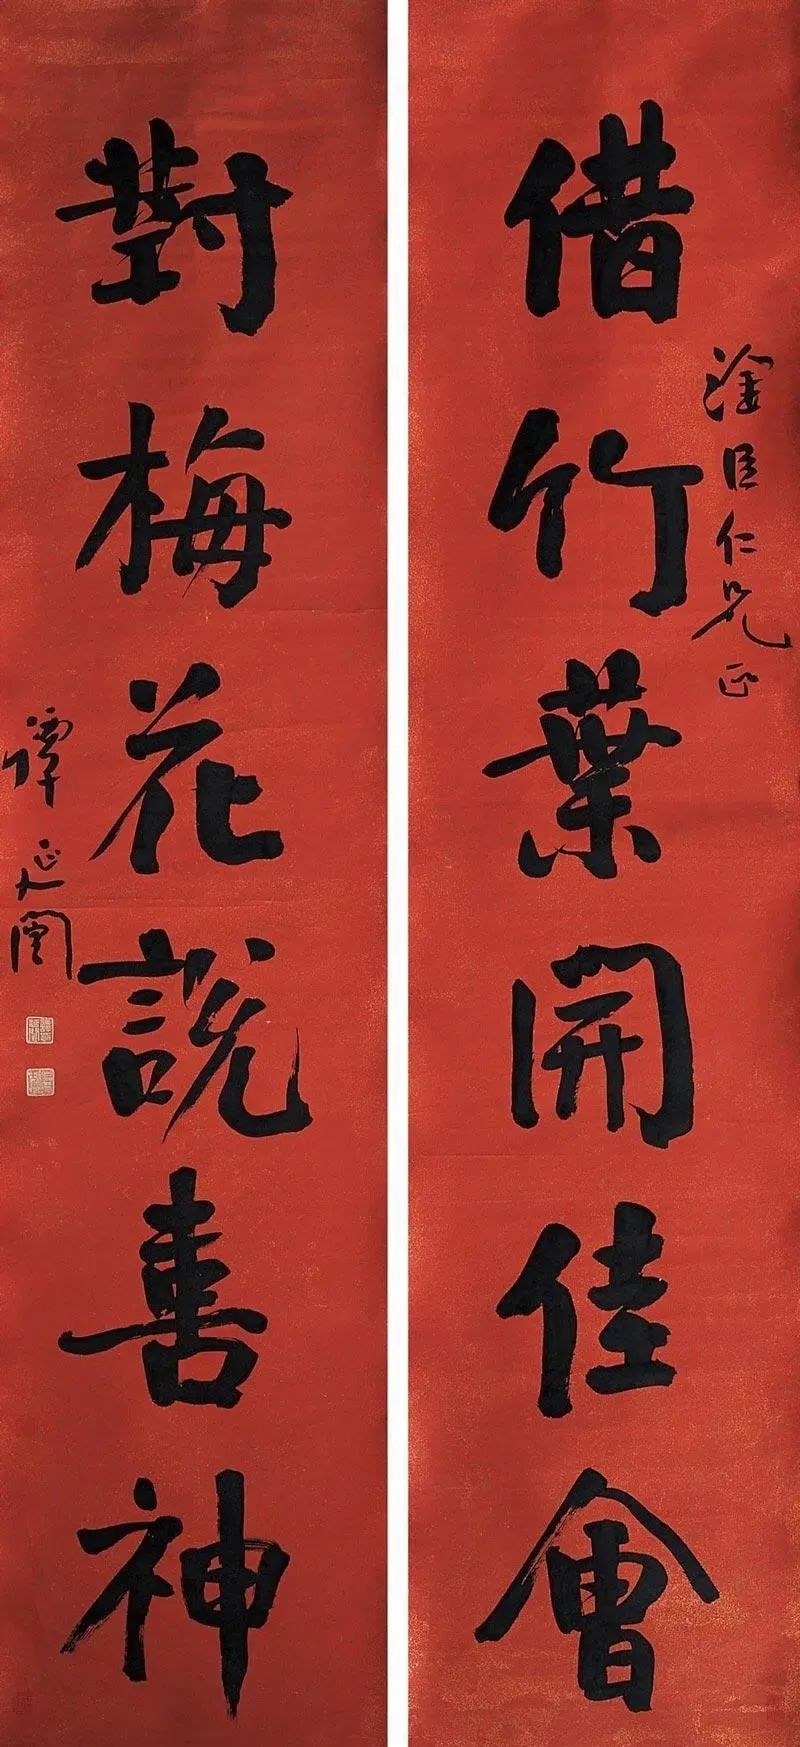 借竹葉開佳會
淦臣仁兄正
對梅花說善神
譚延闓